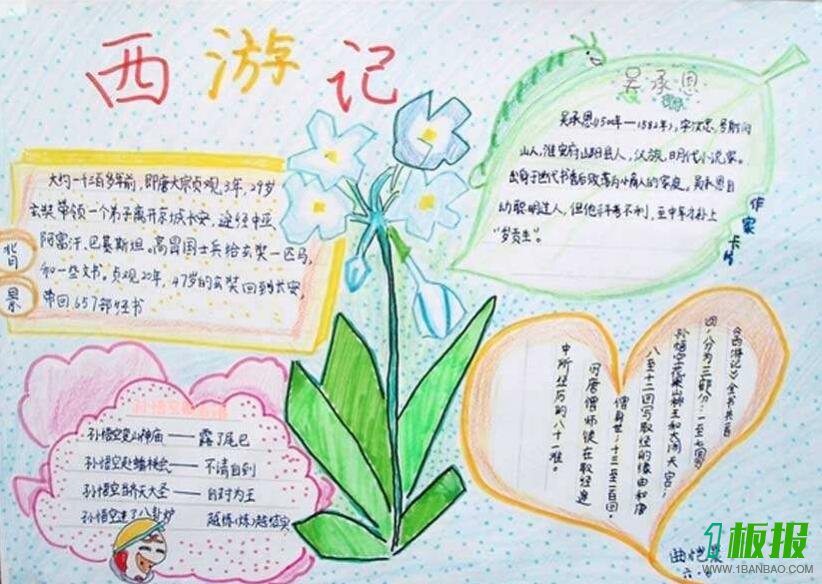 西游记
大约一千三百多年前,即唐太宗贞观3年,29岁
玄奘带领一个弟子离开京城长安,途经中亚、
阿富汗、巴基斯坦。高昌国士兵给玄奘一匹马
和一些文书。贞观20年,47岁的玄奘回到长安,
带回657部经书
背
景
吴承恩
吴承恩(1500年—1582年),字汝忠,号射阳
山人,淮安府山阳县人,汉族,明代小说家。
幼聪明过人,但他科考不利,至中年才补上
"岁贡生"。
作家卡片
孙悟空变山神庙——露了尾巴
孙悟空赴蟠桃会——不请自到
孙悟空自称齐天大圣——自封为王
孙悟空进了八卦炉 越炼(练)越结实
《西游记》全书共百
回,分为三部分:一至七回写
孙悟空花果山称王和大闹天宫;
八至十二回写取经的缘由和唐
僧身世;十三至一百回,
写唐僧师徒在取经途
中所经历的八十一难。
1板报
WWW.1BANBAO.COM